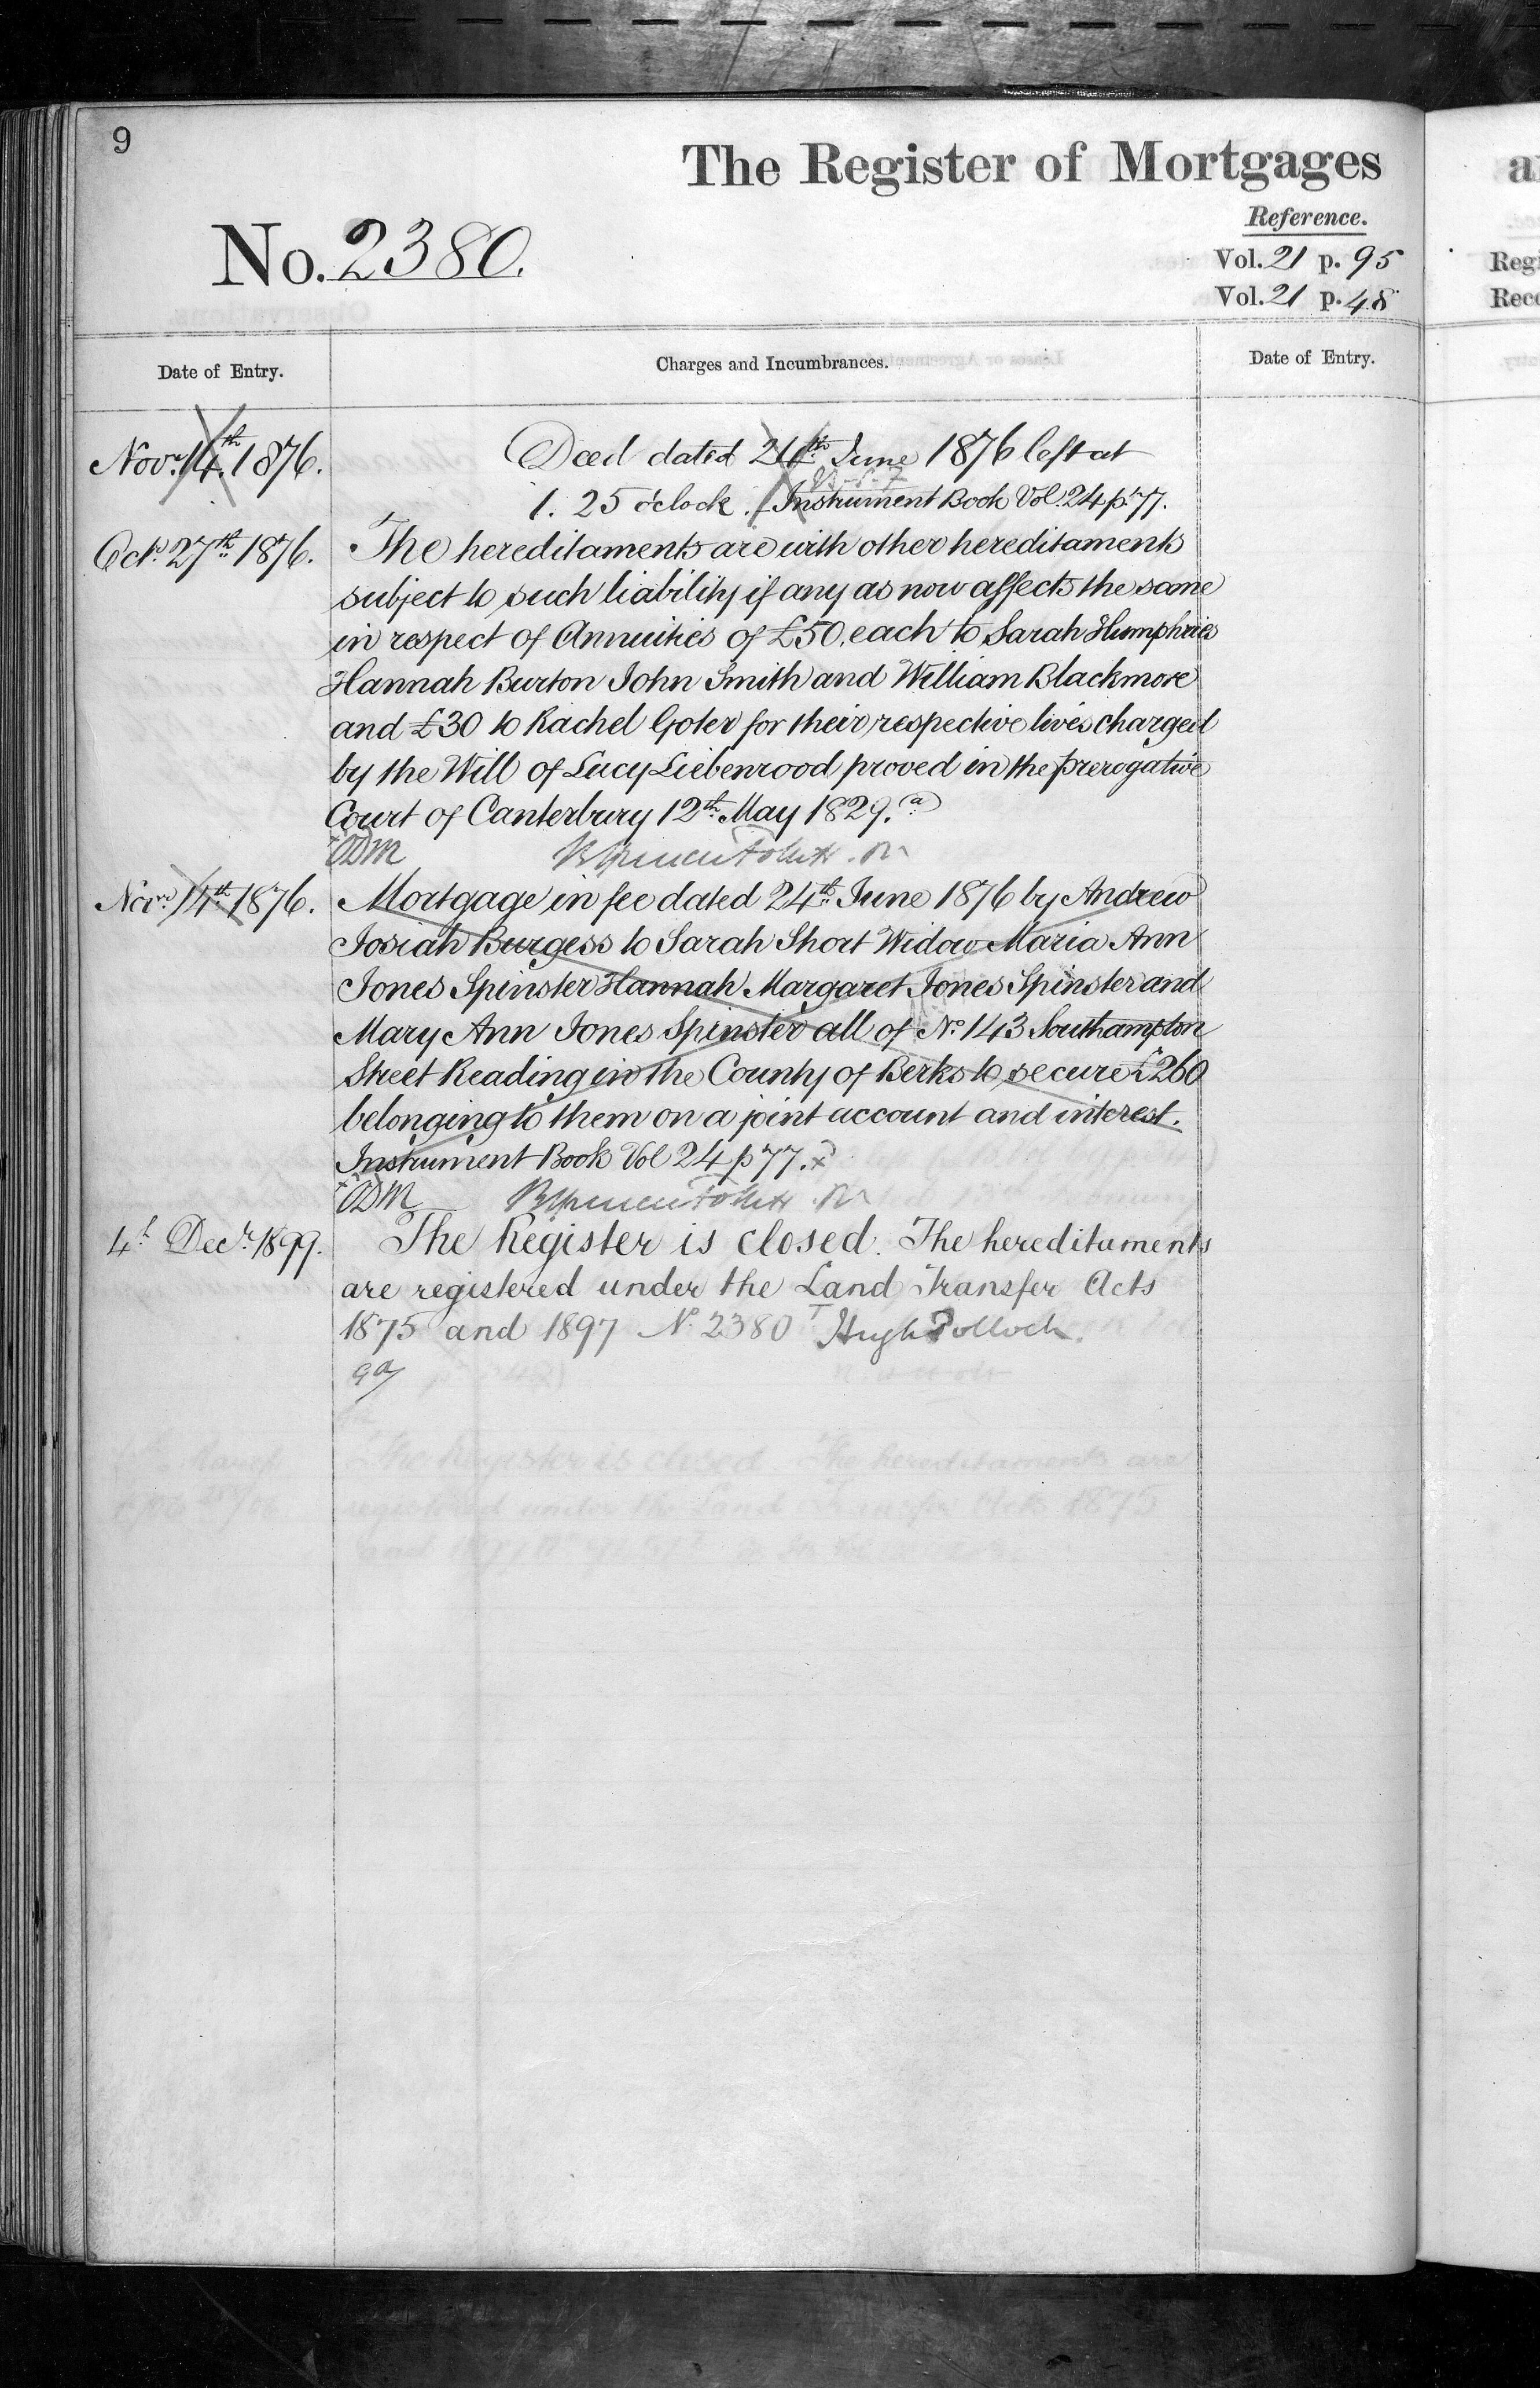 9
The Register of Mortgages
Reference.
No. 2380.
Vol. 21 p. 95
Vol. 21 p. 48
Date of Entry.
Charges and Incumbrances.
Date of Entry.
Novr. 14th 1876.
Deed dated 24th June 1876 left at
1. 25 o'clock. Instrument Book Vol. 24 p. 77.
Octr. 27th 1876.
The hereditaments are with other hereditaments
subject to such liability if any as now affects the same
in respect of Annuities of £50. each to Sarah Humphries
Hannah Burton John Smith and William Blackmore
and £30 to Rachel Goter for their respective lives charged
by the Will of Lucy Liebenrood proved in the prerogative
Court of Canterbury 12th May 1829. a
ODM
Novr. 14th 1876.
Mortgage in fee dated 24th June 1876 by Andrew
Josiah Burgess to Sarah Short Widow Maria Ann
Jones Spinster Hannah Margaret Jones Spinster and
Mary Ann Jones Spinster all of No. 143 Southampton
Street Reading in the County of Berks to secure £260
belonging to them on a joint account and interest.
Instrument Book Vol 24 p 77. x
ODM
4th Decr. 1899.
The Register is closed. The hereditaments
are registered under the Land Transfer Acts
1875 and 1897 No. 2380 Hugh Pollock.
a
Regi
Reco